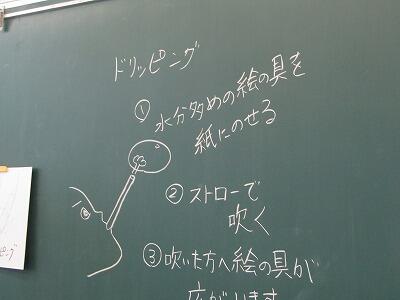 ドリッピング
① 水分多めの絵の具を
紙にのせる
② ストローで
吹く
③ 吹いた方へ絵の具が
広がります